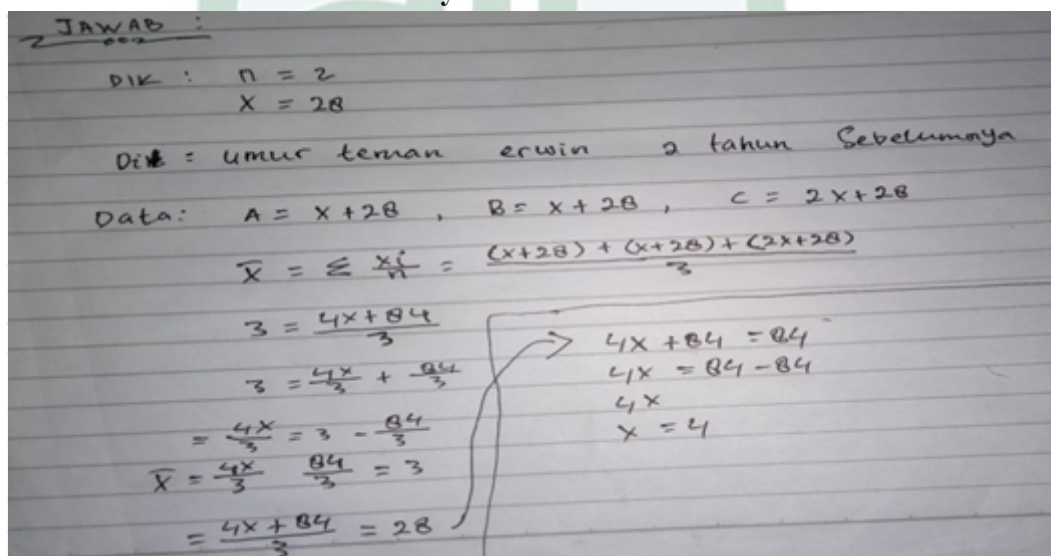 JAWAB :
DIK : n = 2
X = 28
Dit = umur teman erwin 2 tahun Sebelumnya
Data: A = X + 28 , B = X + 28 , C = 2X + 28
X̄ = Σ xi/n = (X+28) + (X+28) + (2X+28) / 3
3 = 4X + 84 / 3
3 = 4X/3 + 84/3
= 4X/3 = 3 - 84/3
X̄ = 4X/3 84/3 = 3
= 4X + 84 / 3 = 28
4X + 84 = 84
4X = 84 - 84
4X
X = 4